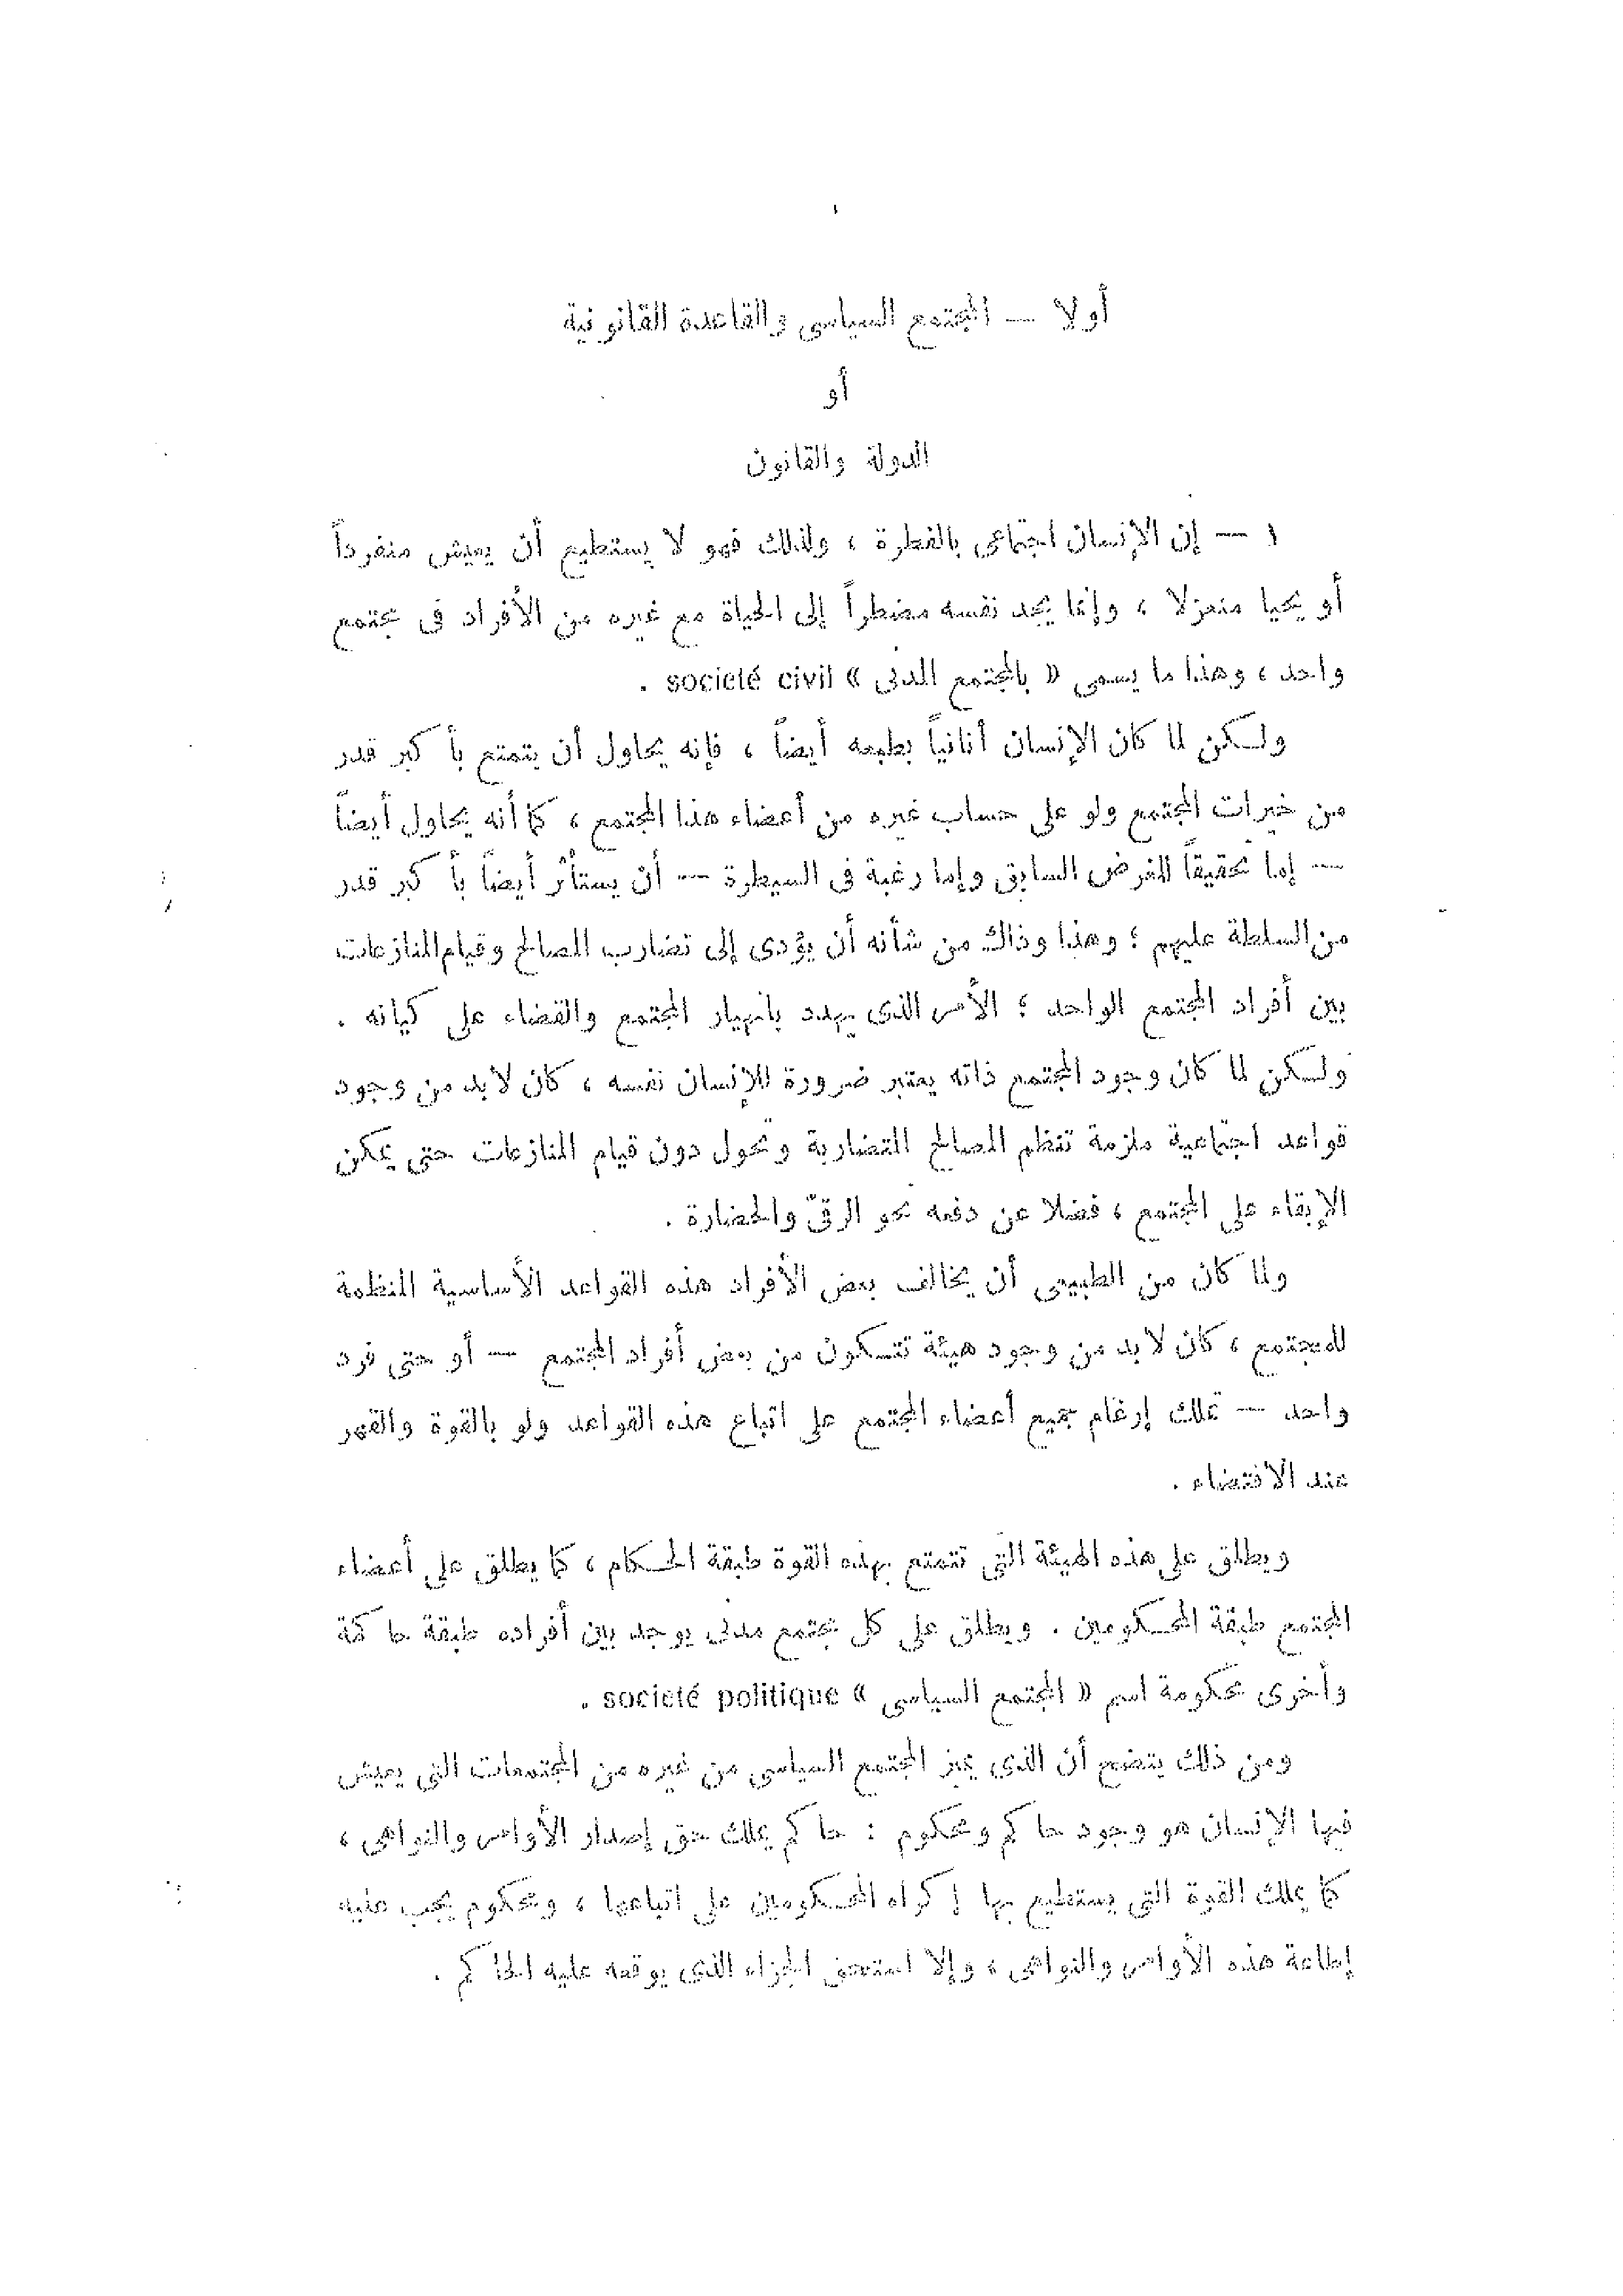 ١
أولا — المجتمع السياسى والقاعدة القانونية
أو
الدولة والقانون
١ — إن الإنسان اجتماعى بالفطرة ، ولذلك فهو لا يستطيع أن يعيش منفرداً
أو يحيا منعزلا ، وإنما يجد نفسه مضطراً إلى الحياة مع غيره من الأفراد فى مجتمع
واحد ، وهذا ما يسمى « بالمجتمع المدنى » societé civil .
ولكن لما كان الإنسان أنانياً بطبعه أيضاً ، فإنه يحاول أن يتمتع بأكبر قدر
من خيرات المجتمع ولو على حساب غيره من أعضاء هذا المجتمع ، كما أنه يحاول أيضاً
— إما تحقيقاً للغرض السابق وإما رغبة فى السيطرة — أن يستأثر أيضاً بأكبر قدر
من السلطة عليهم ؛ وهذا وذاك من شأنه أن يؤدى إلى تضارب المصالح وقيام المنازعات
بين أفراد المجتمع الواحد ؛ الأمر الذى يهدد بانهيار المجتمع والقضاء على كيانه .
ولكن لما كان وجود المجتمع ذاته يعتبر ضرورة للإنسان نفسه ، كان لابد من وجود
قواعد اجتماعية ملزمة تنظم المصالح المتضاربة وتحول دون قيام المنازعات حتى يمكن
الإبقاء على المجتمع ، فضلا عن دفعه نحو الرقىّ والحضارة .
ولما كان من الطبيعى أن يخالف بعض الأفراد هذه القواعد الأساسية المنظمة
للمجتمع ، كان لابد من وجود هيئة تتكون من بعض أفراد المجتمع — أو حتى فرد
واحد — تملك إرغام جميع أعضاء المجتمع على اتباع هذه القواعد ولو بالقوة والقهر
عند الاقتضاء .
ويطلق على هذه الهيئة التى تتمتع بهذه القوة طبقة الحكام ، كما يطلق على أعضاء
المجتمع طبقة المحكومين . ويطلق على كل مجتمع مدنى يوجد بين أفراده طبقة حاكمة
وأخرى محكومة اسم « المجتمع السياسى » societé politique .
ومن ذلك يتضح أن الذى يميز المجتمع السياسى من غيره من المجتمعات التى يعيش
فيها الإنسان هو وجود حاكم ومحكوم : حاكم يملك حق إصدار الأوامر والنواهى ،
كما يملك القوة التى يستطيع بها إكراه المحكومين على اتباعها ، ومحكوم يجب عليه
إطاعة هذه الأوامر والنواهى ، وإلا استحق الجزاء الذى يوقعه عليه الحاكم .